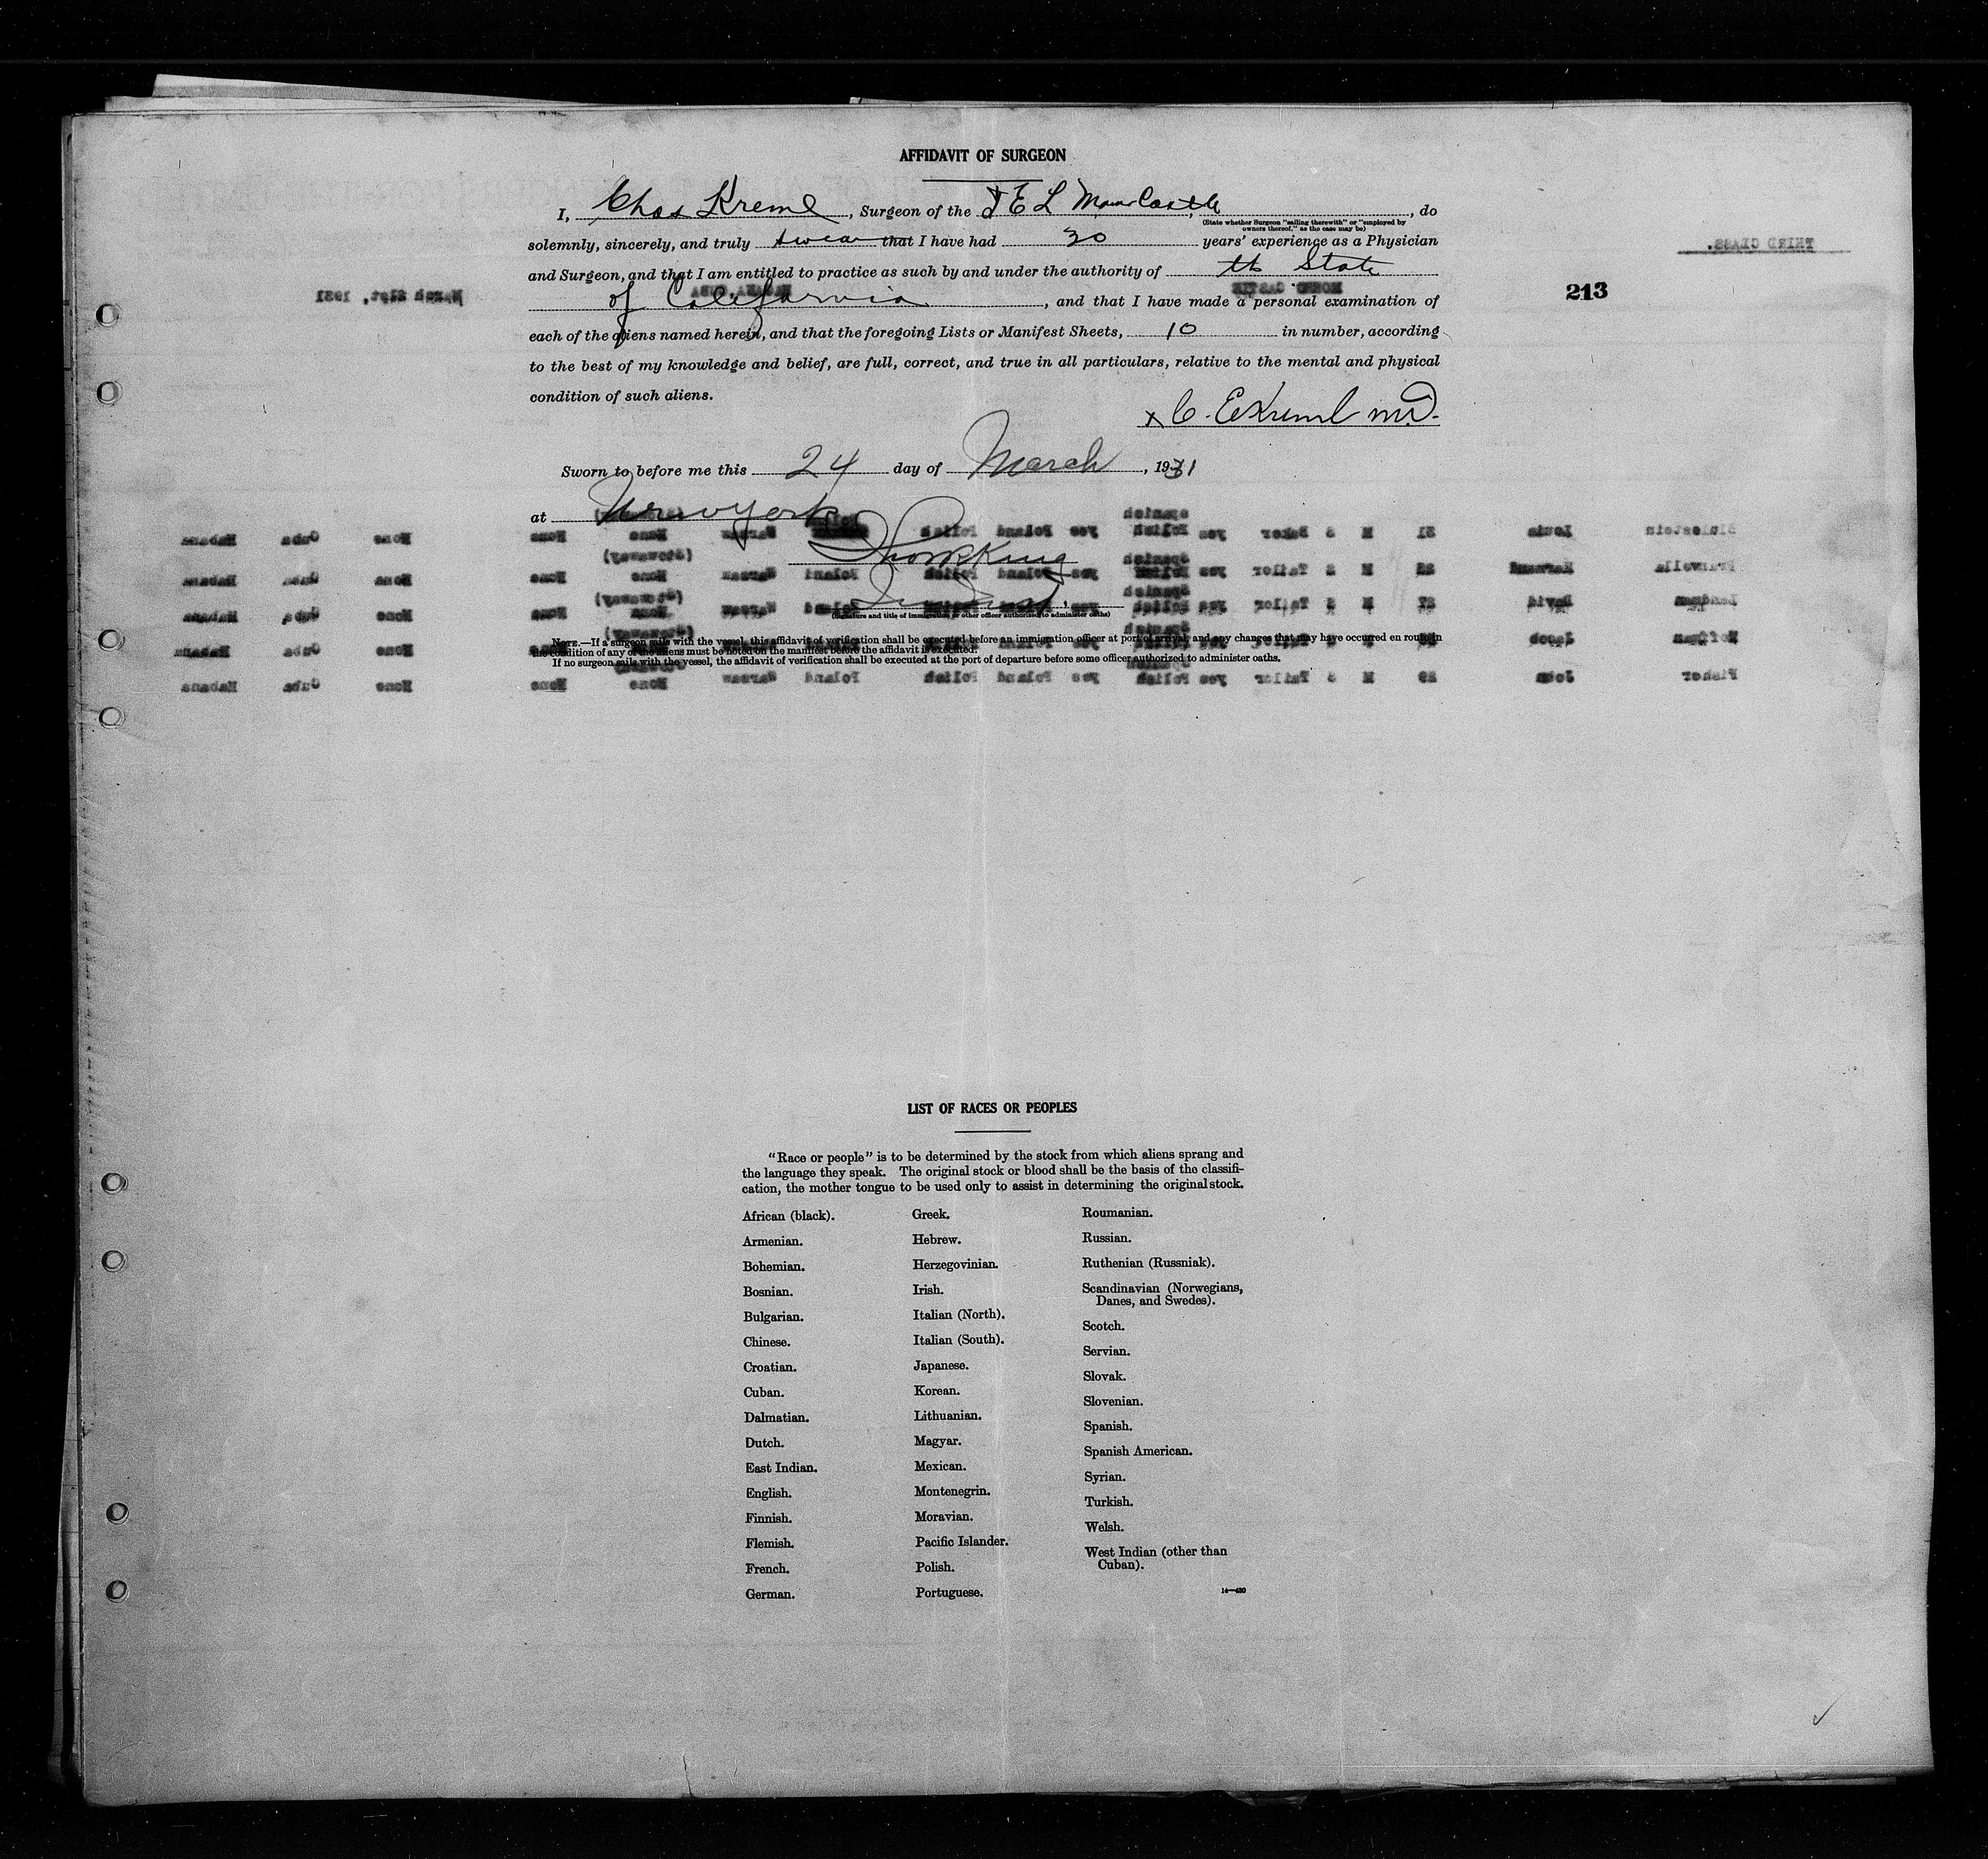 AFFIDAVIT OF SURGEON
I, Chas Kreml, Surgeon of the T E L Morro Castle, do
(State whether Surgeon "sailing therewith" or "employed by
owners thereof," as the case may be)
solemnly, sincerely, and truly swear that I have had 30 years' experience as a Physician
THIRD CLASS.
and Surgeon, and that I am entitled to practice as such by and under the authority of the State
March 21st, 1931
HABANA, CUBA
MORRO CASTLE
213
of California, and that I have made a personal examination of
each of the aliens named herein, and that the foregoing Lists or Manifest Sheets, 10 in number, according
to the best of my knowledge and belief, are full, correct, and true in all particulars, relative to the mental and physical
condition of such aliens.
x C. E Kreml M.D.
Sworn to before me this 24 day of March, 1931
at New York
(Signature and title of immigration or other officer authorized to administer oaths)
NOTE.—If a surgeon sails with the vessel, this affidavit of verification shall be executed before an immigration officer at port of arrival, and any changes that may have occurred en route in
the condition of any of the aliens must be noted on the manifest before the affidavit is executed.
If no surgeon sails with the vessel, the affidavit of verification shall be executed at the port of departure before some officer authorized to administer oaths.
Fisher John 29 M S Tailor yes Polish yes Poland Polish Poland Warsaw None None None Cuba Habana
LIST OF RACES OR PEOPLES
"Race or people" is to be determined by the stock from which aliens sprang and
the language they speak. The original stock or blood shall be the basis of the classifi-
cation, the mother tongue to be used only to assist in determining the original stock.
African (black).
Armenian.
Bohemian.
Bosnian.
Bulgarian.
Chinese.
Croatian.
Cuban.
Dalmatian.
Dutch.
East Indian.
English.
Finnish.
Flemish.
French.
German.
Greek.
Hebrew.
Herzegovinian.
Irish.
Italian (North).
Italian (South).
Japanese.
Korean.
Lithuanian.
Magyar.
Mexican.
Montenegrin.
Moravian.
Pacific Islander.
Polish.
Portuguese.
Roumanian.
Russian.
Ruthenian (Russniak).
Scandinavian (Norwegians,
Danes, and Swedes).
Scotch.
Servian.
Slovak.
Slovenian.
Spanish.
Spanish American.
Syrian.
Turkish.
Welsh.
West Indian (other than
Cuban).
14—430